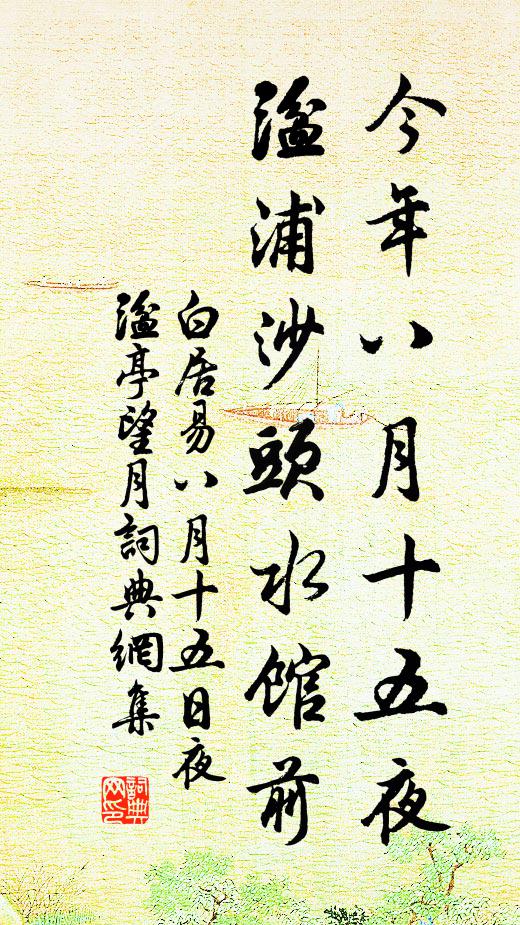 今年八月十五夜
湓浦沙頭水館前
白居易八月十五日夜
湓亭望月詞典網集
詞典
网印